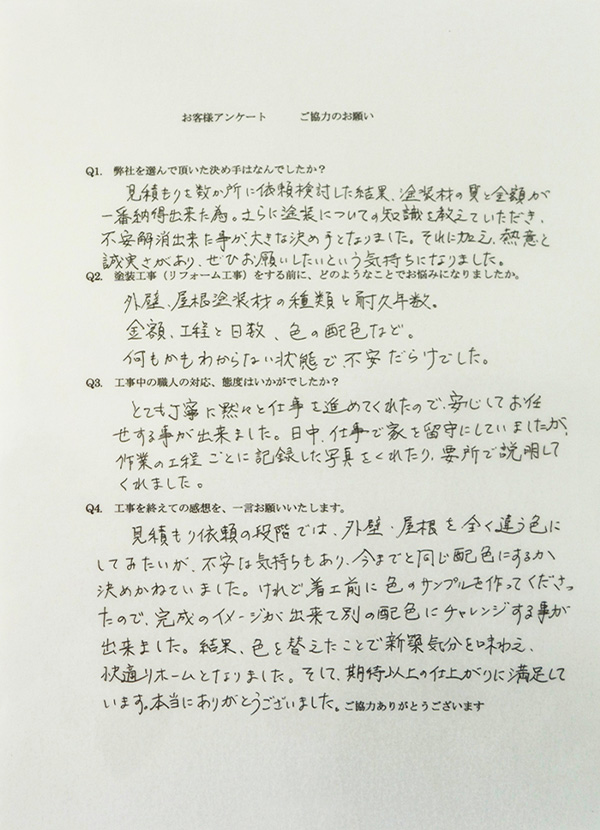 お客様アンケート　　ご協力のお願い
Q1. 弊社を選んで頂いた決め手はなんでしたか？
見積もりを数か所に依頼検討した結果、塗装材の質と金額が
一番納得出来た為。さらに塗装についての知識を教えていただき、
不安解消出来た事が大きな決め手となりました。それに加え、熱意と
誠実さがあり、ぜひお願いしたいという気持ちになりました。
Q2. 塗装工事（リフォーム工事）をする前に、どのようなことでお悩みになりましたか。
外壁、屋根塗装材の種類と耐久年数。
金額、工程と日数、色の配色など。
何もかもわからない状態で、不安だらけでした。
Q3. 工事中の職人の対応、態度はいかがでしたか？
とても丁寧に黙々と仕事を進めてくれたので、安心してお任
せする事が出来ました。日中、仕事で家を留守にしていましたが、
作業の工程ごとに記録した写真をくれたり、要所で説明して
くれました。
Q4. 工事を終えての感想を、一言お願いいたします。
見積もり依頼の段階では、外壁・屋根を全く違う色に
してみたいが、不安な気持ちもあり、今までと同じ配色にするか
決めかねていました。けれど着工前に色のサンプルを作ってくださっ
たので、完成のイメージが出来て別の配色にチャレンジする事が
出来ました。結果、色を替えたことで新築気分を味わえ、
快適リホームとなりました。そして、期待以上の仕上がりに満足して
います。本当にありがとうございました。ご協力ありがとうございます